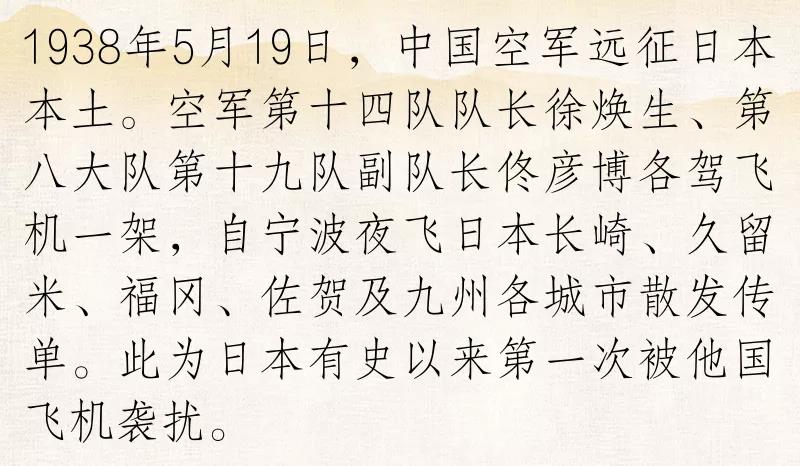 1938年5月19日，中国空军远征日本
本土。空军第十四队队长徐焕生、第
八大队第十九队副队长佟彦博各驾飞
机一架，自宁波夜飞日本长崎、久留
米、福冈、佐贺及九州各城市散发传
单。此为日本有史以来第一次被他国
飞机袭扰。